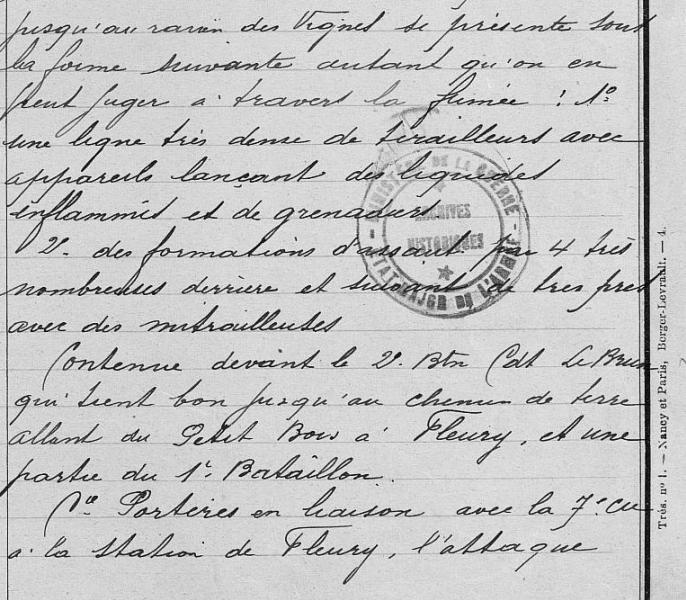 jusqu'au ravin des Vignes se présente sous
la forme suivante autant qu'on en
peut juger à travers la fumée : 1º
une ligne très dense de tirailleurs avec
appareils lançant des liquides
inflammés et de grenadiers
2º des formations d'assaut par 4 très
nombreuses derrière et suivant de très près
avec des mitrailleuses
Contenue devant le 2e Btn Cdt Le Brun
qui tient bon jusqu'au chemin de terre
allant du Petit Bois à Fleury, et une
partie du 1er Bataillon.
Cie Portères en liaison avec la 7e Cie
à la station de Fleury, l'attaque
MINISTÈRE DE LA GUERRE
ARCHIVES
HISTORIQUES
ETAT-MAJOR DE L'ARMÉE
Trés. nº 1. — Nancy et Paris, Berger-Levrault. — 4.